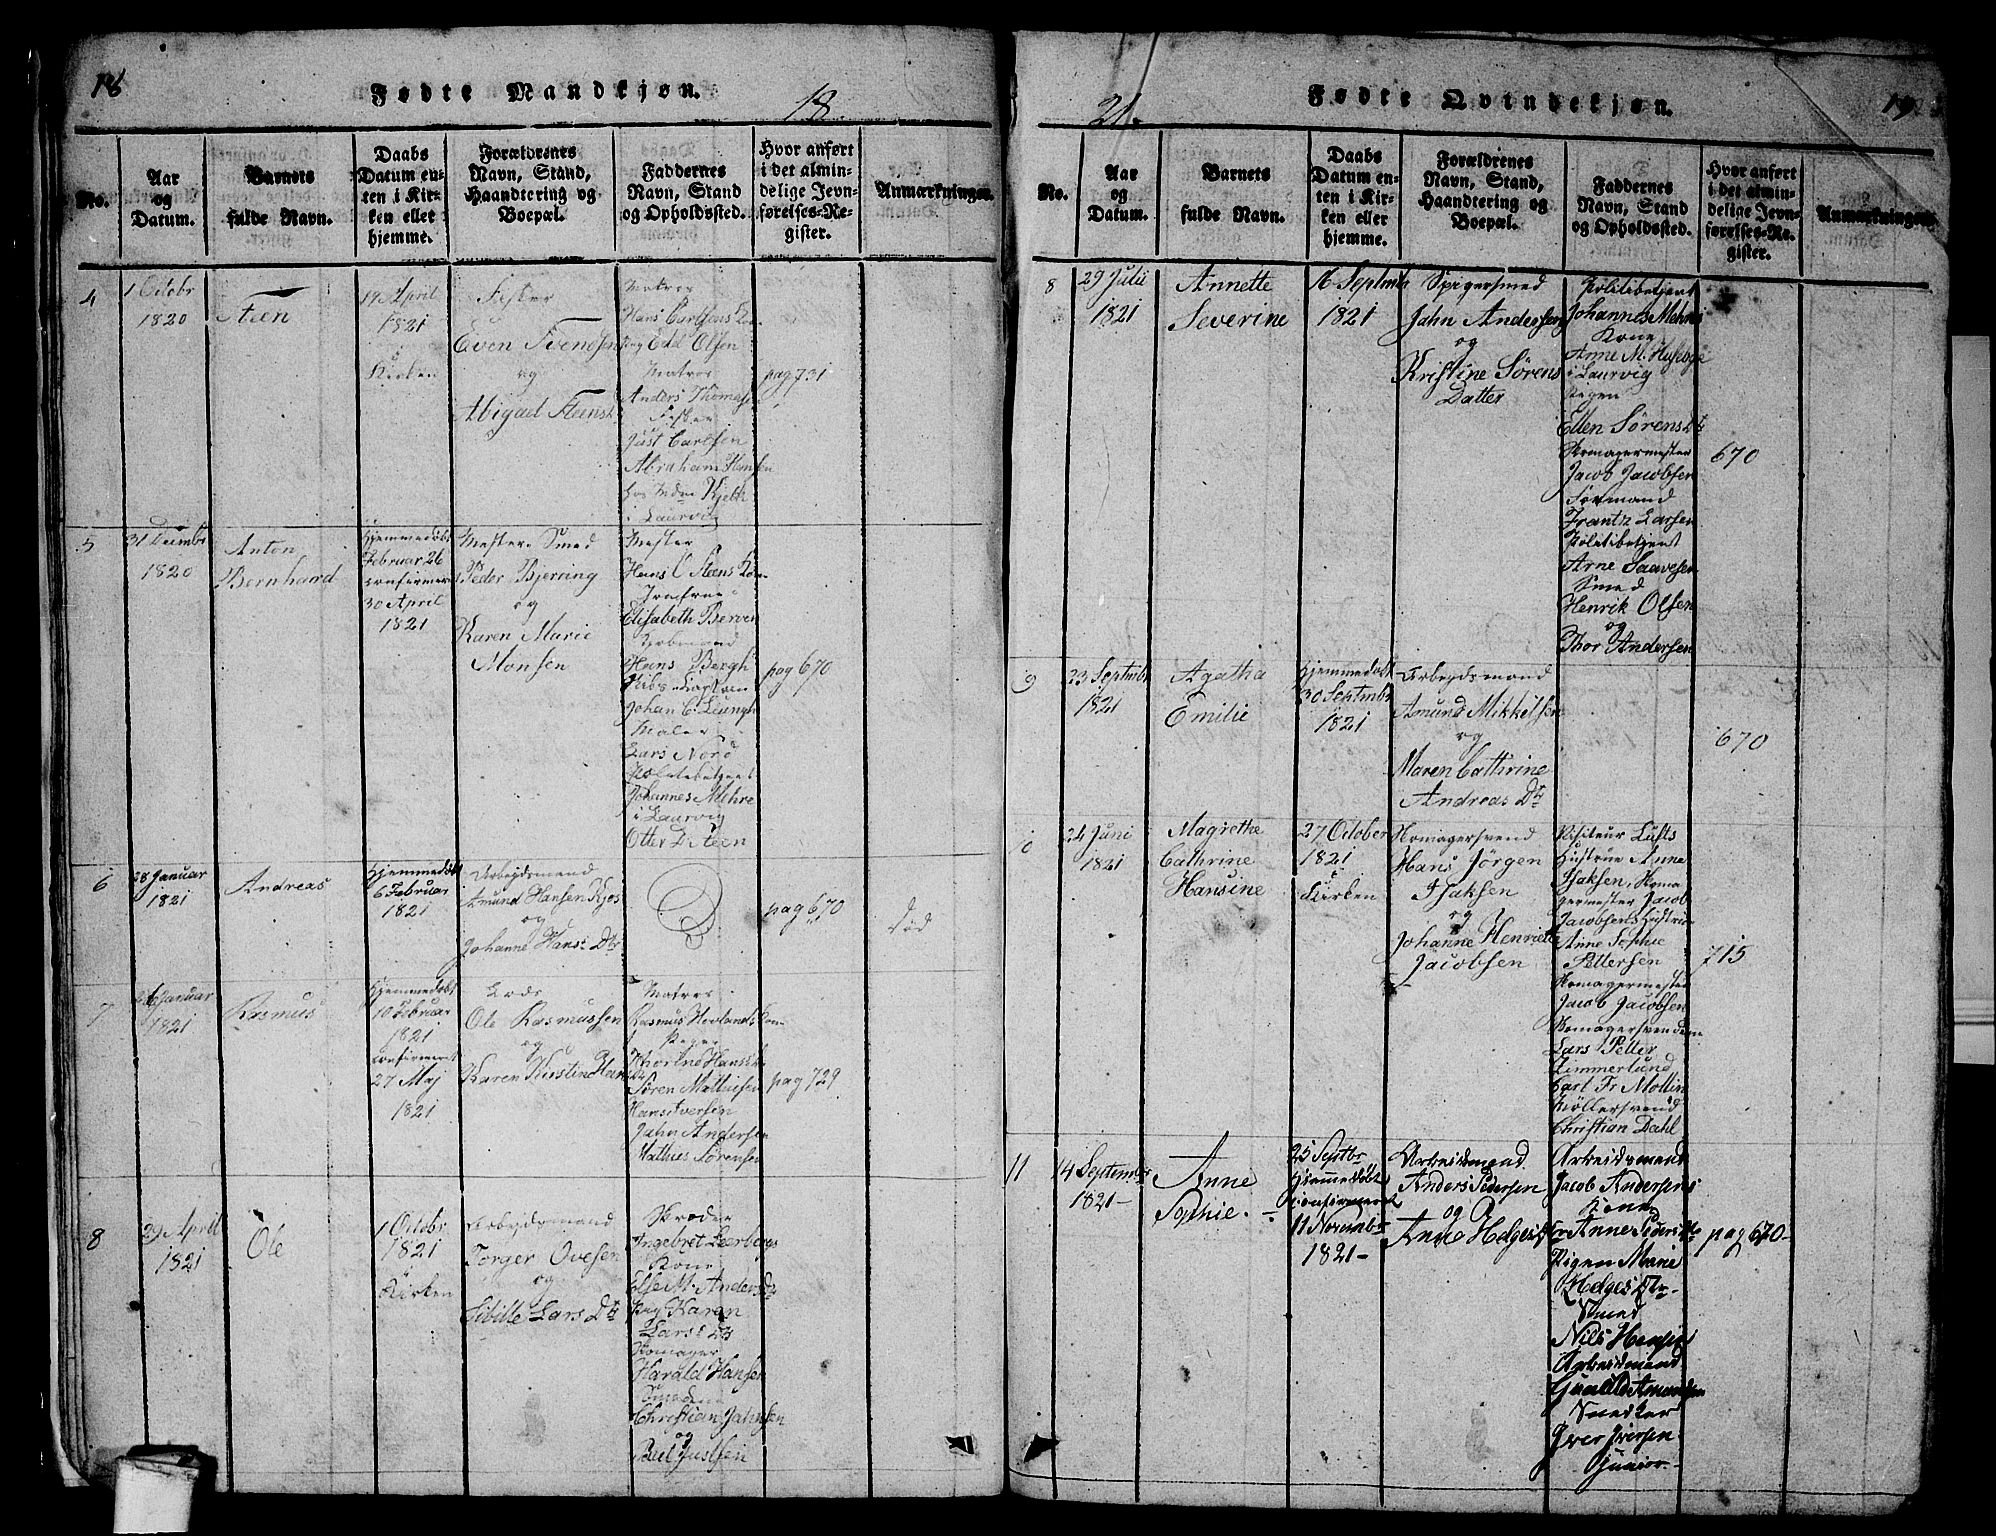 18
Fødte Mandkjøn.
18.
No.
Aar
og
Datum.
Barnets
fulde Navn.
Daabs
Datum en-
ten i Kir-
ken ellet
hjemme.
Forældrenes
Navn, Stand,
Haandtering og
Boepæl.
Faddernes
Navn, Stand
og Opholdssted.
Hvor anført
i det almin-
delige Jevn-
førelses-Re-
gister.
Anmærkninger.
4
1 Octobr
1820
Steen
1821
Kirken
Fisker
Even Svendsen
og
Abigael Steens
Matros
Hans Carlsens
Olsen
Matros
Anders Thomesen
Fisker
Just Carlsen
Abraham
i Laurvig
pag 731
5
31 Decembr
1820
Anton
Bernhard
Hjemmedøbt
Februar 26
confirmeret
30 April
1821
Mester Smed
Peder Bjerring
og
Karen Marie
Monsen
Mester
Hans C Steens
Jomfrue
Elisabeth
Hans Bergh
Johan C.
Maler
Lars Nord
Politibetjent
Johannes Mehre
i Laurvig
Otter D Steen
pag 670
6
28 Januar
1821
Andreas
Hjemmedøbt
6 Februar
1821
Arbejdsmand
Amund Hansen Kjøs
og
Johanne Hans Dtr
pag 670
død
7
Januar
1821
Rasmus
Hjemmedøbt
10 Februar
1821
confirmeret
27 Maj
1821
Lods
Ole Rasmussen
og
Karen Kirstine Han
Matros
Rasmus
Søren Mathiesen
Hans Iversen
Jahn Andersen
Mathies Sørensen
pag 729
8
29 April
1821
Ole
1 Octobr
1821
i
Kirken
Arbejdsmand
Torger Ovesen
og
Sibille Lars Dtr
Skræder
Ingebret
Kone
Else M. Anders Dtr
Karen
Lars Dtr
Skomager
Harald Hansen
Christian Jahnsen
og
Poul Justsen
21.
Fødte Qvindekjøn.
19
No.
Aar
og
Datum.
Barnets
fulde Navn.
Daabs
Datum en-
ten i Kir-
ken eller
hjemme.
Forældrenes
Navn, Stand,
Haandtering og
Boepæl.
Faddernes
Navn, Stand
og Opholdssted.
Hvor anfert
i det almin-
delige Jevn-
førelses-Re-
gister.
Anmærkninger.
8
29 Julii
1821
Annette
Severine
16 Septmbr
1821
Spigersmed
Jahn Andersen
og
Kristine Sørens
Datter
Politibetjent
Johannes Mehres
Kone
Anne M.
i Laurvig
Pigen
Ellen Sørens Dtr
Skomagermester
Jacob Jacobsen
Formand
Frantz Larsen
Politibetjent
Arne
Smed
Henrik Olsen
og
Thor Andersen
670
9
23 Septmbr
1821
Agatha
Emilie
Hjemmedøbt
30 Septmbr
1821
Arbejdsmand
Amund Mikkelsen
og
Maren Cathrine
Andreas Dtr
670
10
24 Juni
1821
Magrethe
Cathrine
Hansine
27 October
1821
i
Kirken
Skomagersvend
Hans Jörgen
Isaksen
og
Johanne Henriette
Jacobsen
Visiteur Lufts
Hustrue Anne
Isaksen, Skoma
germester Jacob
Jacobsens Hustrue
Anne Sophie
Pettersen
Skomagermester
Jacob Jacobsen
Skomagersvendene
Lars Petter
Zimmerlund
Carl Fr Mollin
Møllersvend
Christian Dahl
715
11
14 Septembr
1821-
Anne
Sophie.
25 Septbr
Hjemmedøbt
confirmeret
11 Novmbr
1821-
Arbeidsmand
Anders Pedersen
og
Anne Helges
Arbeidsmand
Jacob Andersens
Kone
Anne
Pigen Marie
Helges Dtr
Smed
Nils Hansen
Arbeidsmand
Snedker
Iver Iversen
Junior
pag 670-